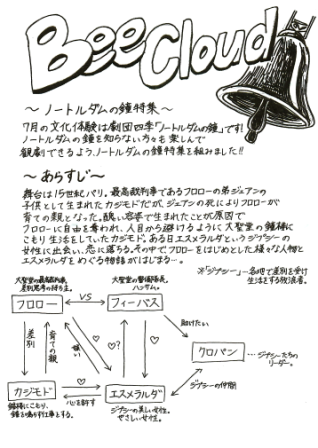 Bee Cloud
～ノートルダムの鐘特集～
7月の文化体験は劇団四季「ノートルダムの鐘」です!
ノートルダムの鐘を知らない方々も楽しんで
観劇できるよう、ノートルダムの鐘特集を組みました!!
～あらすじ～
舞台は15世紀パリ。最高裁判事であるフロローの弟ジェアンの
子供として生まれたカジモドだが、ジェアンの死によりフロローが
育ての親となった。醜い容姿で生まれたことが原因で
フロローに自由を奪われ、人目から避けるように大聖堂の鐘楼に
こもり生活をしていたカジモド。ある日エスメラルダというジプシーの
女性に出会い、恋に落ちる。その中で、フロローをはじめとした様々な人物と
エスメラルダをめぐる物語がはじまる…。
※「ジプシー」…各地で差別を受け
生活をする放浪者。
大聖堂の最高裁判事。
差別思考の持ち主。
大聖堂の警備隊長。
ハンサム。
フロロー
VS
フィーバス
助けたい
差別
育ての親
憎い
♡
♡?
♡
クロパン
…ジプシーたちの
リーダー。
ジプシーの仲間
カジモド
♡
心を許す
エスメラルダ
鐘楼にこもり、
鐘を鳴らす仕事をする。
ジプシーの美しい女性。
やさしい女性。